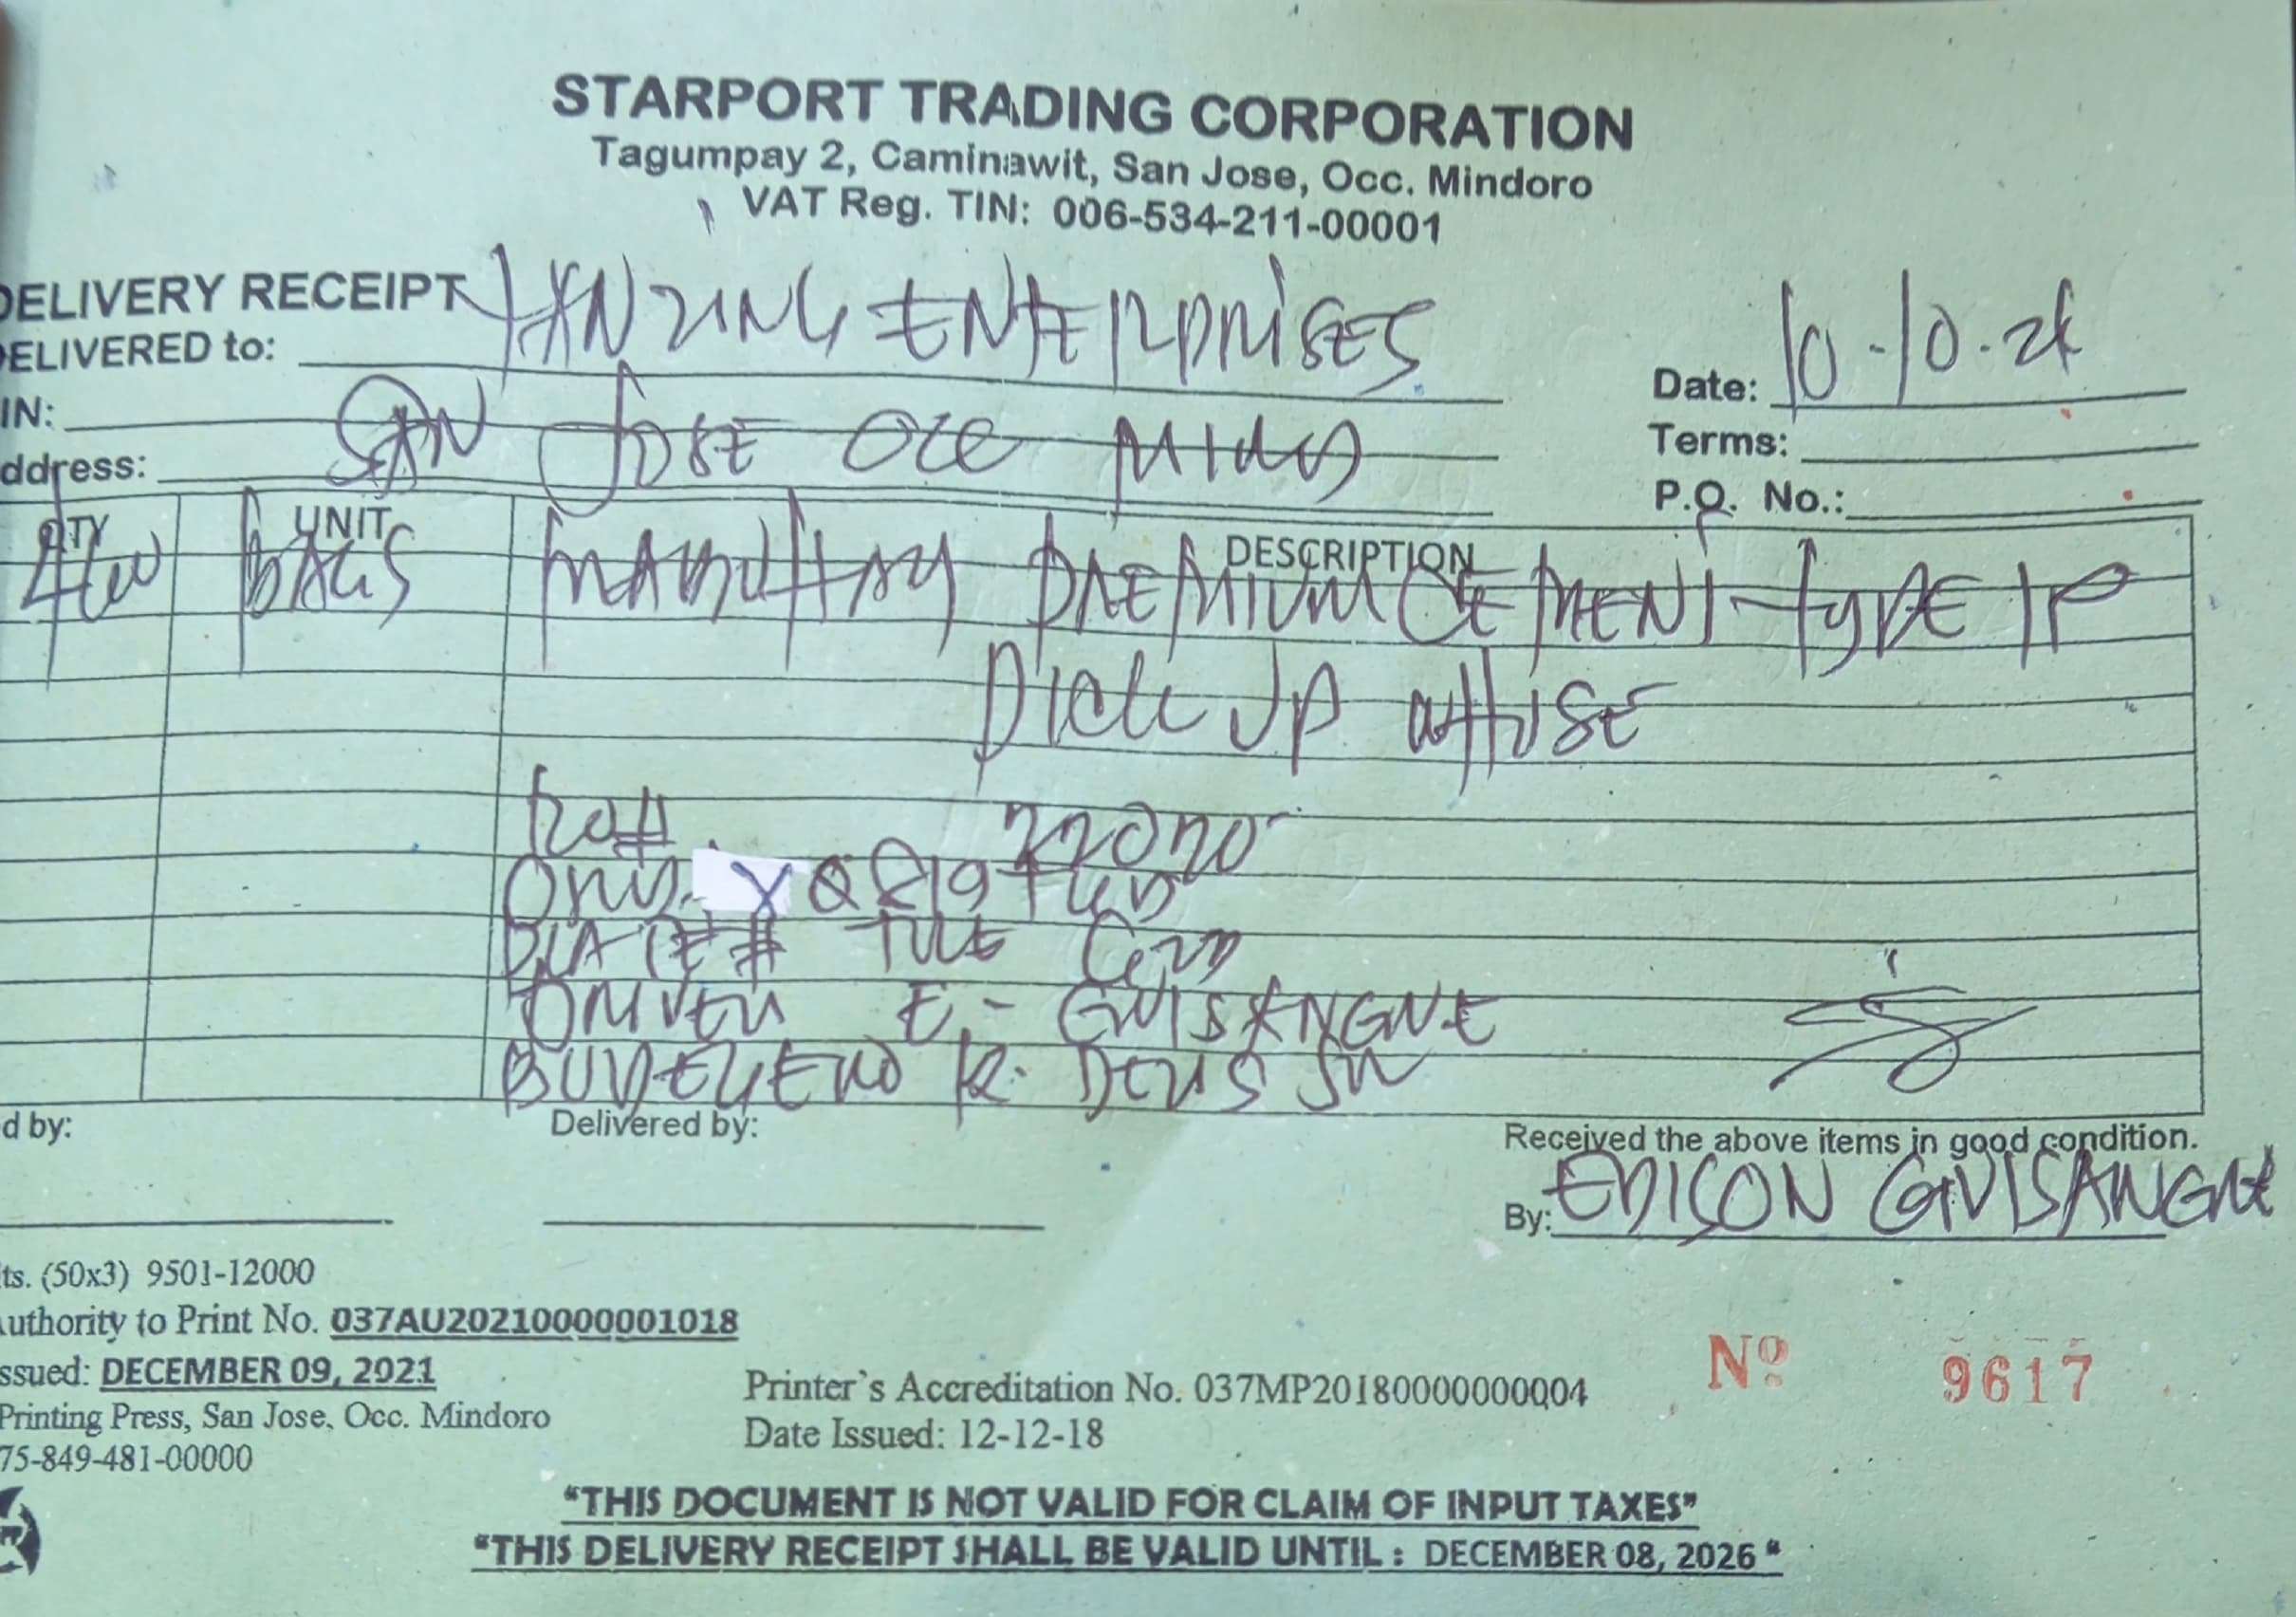 STARPORT TRADING CORPORATION
Tagumpay 2, Caminawit, San Jose, Occ. Mindoro
VAT Reg. TIN: 006-534-211-00001
DELIVERY RECEIPT
DELIVERED to: YANZING ENTERPRISES
Date: 10-10-24
IN:
Terms:
ddress: SAN JOSE OCC MINDO
P.O. No.:
QTY UNIT DESCRIPTION
BAGS PREMIUM CEMENT-TYPE 1P
PICK UP W/HSE
PLATE#
DRIVER E. GUISANGNE
Delivered by:
d by:
Received the above items in good condition.
By: EDISON GUISANGNE
ts. (50x3) 9501-12000
uthority to Print No. 037AU20210000001018
ssued: DECEMBER 09, 2021
Printing Press, San Jose, Occ. Mindoro
75-849-481-00000
Printer's Accreditation No. 037MP20180000000004
Date Issued: 12-12-18
Nº 9617
"THIS DOCUMENT IS NOT VALID FOR CLAIM OF INPUT TAXES"
"THIS DELIVERY RECEIPT SHALL BE VALID UNTIL : DECEMBER 08, 2026 "